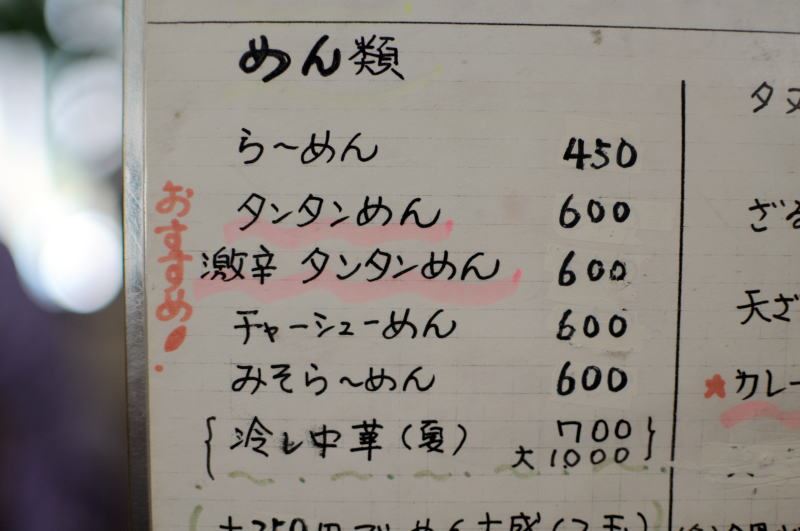 めん類
おすすめ!
ら〜めん 450
タンタンめん 600
激辛 タンタンめん 600
チャーシューめん 600
みそら〜めん 600
{冷し中華(夏) 700
大1000}
ざる
天ざ
カレー